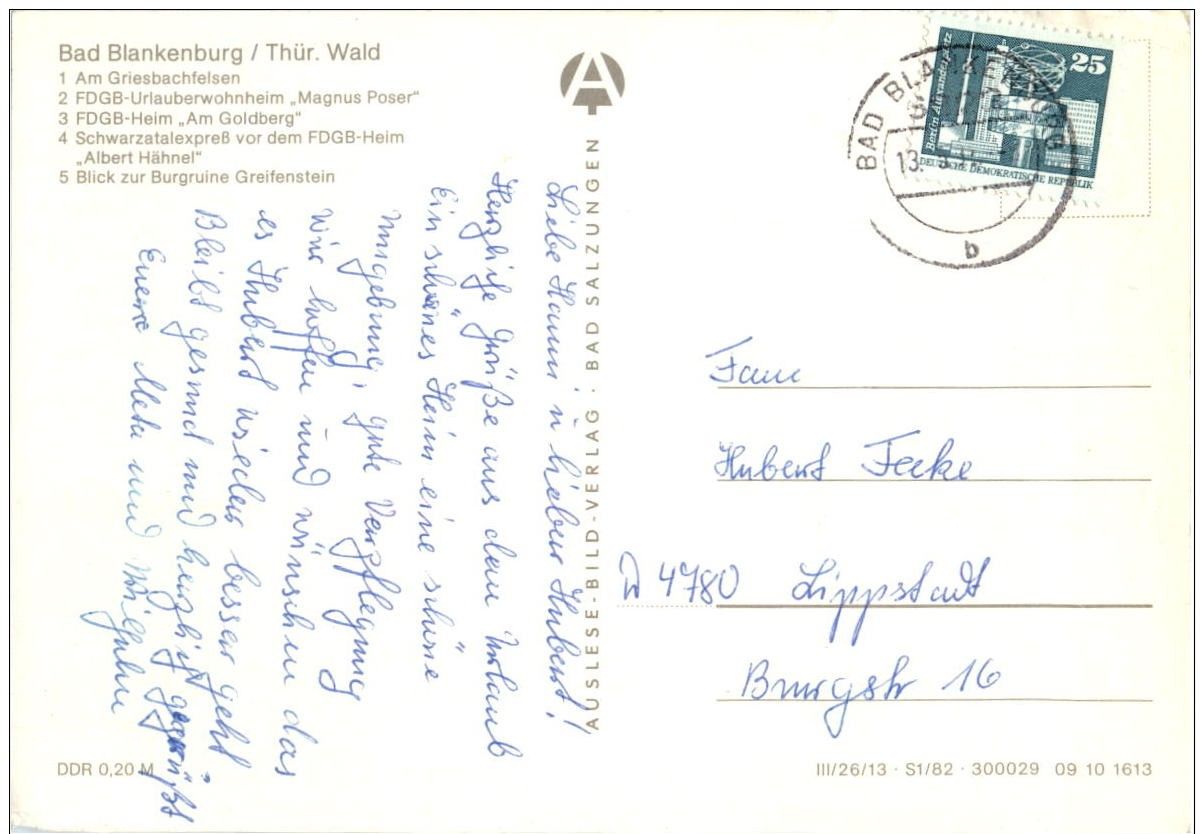 Bad Blankenburg / Thür. Wald
1 Am Griesbachfelsen
2 FDGB-Urlauberwohnheim „Magnus Poser“
3 FDGB-Heim „Am Goldberg“
4 Schwarzatalexpreß vor dem FDGB-Heim
„Albert Hähnel“
5 Blick zur Burgruine Greifenstein
Liebe Hanni u lieber Hubert!
Herzliche Grüße aus dem Urlaub
Ein schönes Heim eine schöne
Umgebung, gute Verpflegung
Wir hoffen und wünschen das
es Hubert wieder besser geht
Bleibt gesund und herzlich gegrüßt
Euere Meta und
AUSLESE-BILD-VERLAG · BAD SALZUNGEN
A
25
Berlin Alexanderplatz
DEUTSCHE DEMOKRATISCHE REPUBLIK
BAD BLANKENBURG
13.
b
Fam
Hubert Feeke
D 4780 Lippstadt
Burgstr 16
DDR 0,20 M
III/26/13 · S1/82 · 300029 09 10 1613